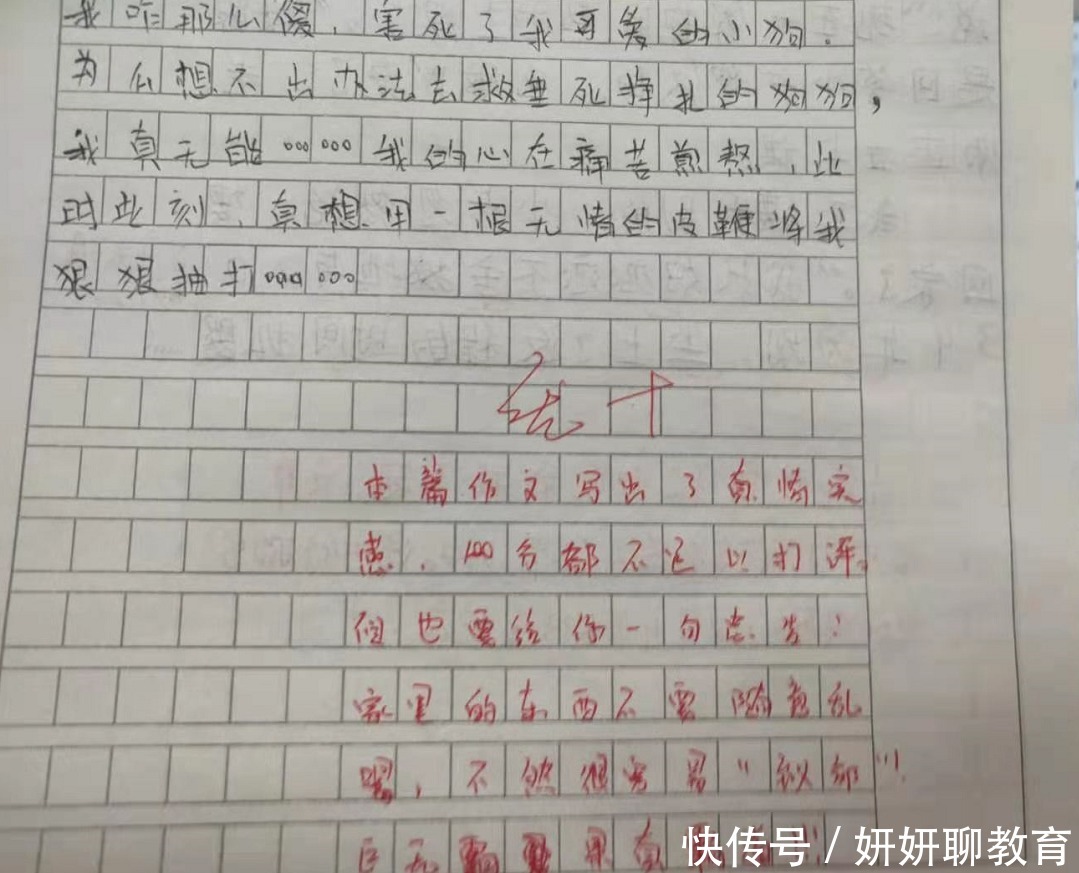 我咋那么傻，害死了我可爱的小狗.
为么想不出办法去救垂死挣扎的狗狗，
我真无能……我的心在痛苦煎熬，此
时此刻、真想用一根无情的皮鞭将我
狠狠抽打……
优十
本篇作文写出了真情实
感，100分都不足以打评。
但也要给你一句忠告：
家里的东西不要随意乱
喂，不然很容易"
快传号/妍妍聊教育